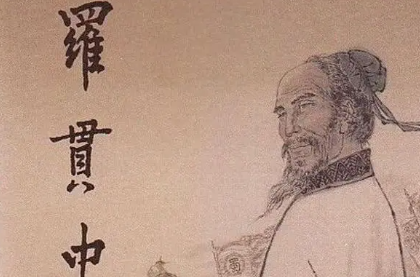 羅貫中